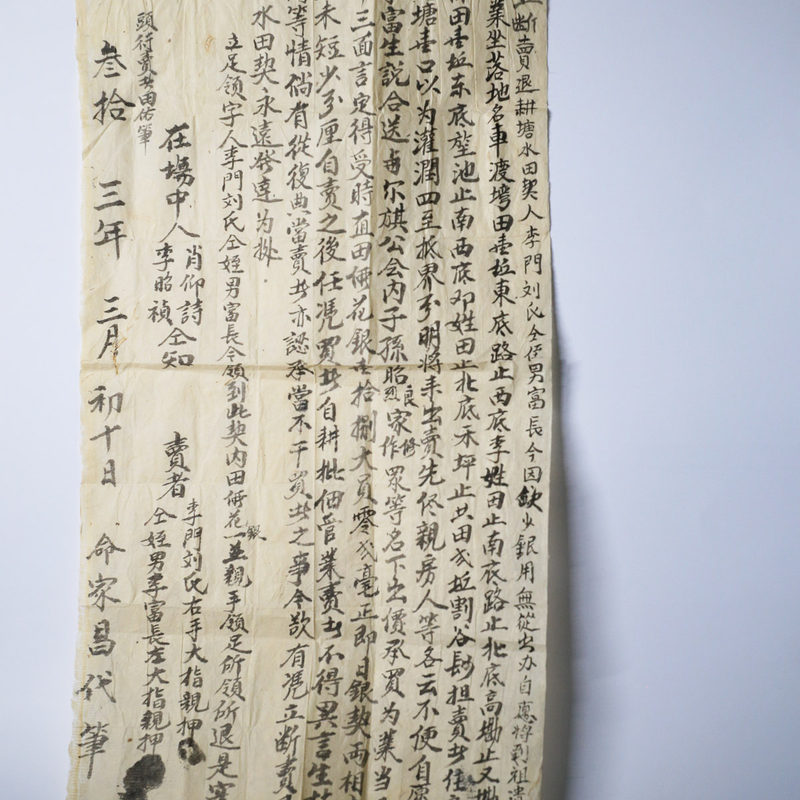 立断賣退耕塘水田契人李門刘氏仝侄男富長今因缺少銀用無從出办自愿將到祖遗
業坐落地名車渡塆田壹坵東底路止西底李姓田止南底路止北底高磡止又磡
田壹坵东底壆池止南西底邓姓田止北底禾坪止共田弍坵割谷 担賣者任
塘壹口以為灌潤四至抵界分明將来出賣先侭親房人等各云不便自愿
李富生説合送与尔旗公会内子孫昭良烈家修作眾等名下出價承買為業当
三面言定得受時直田価花銀壹拾捌大員零弍毫正即日銀契両相
未短少分厘自賣之後任凴買者自耕批佃管業賣者不得異言生
等情倘有從復典當賣者亦認承當不干買者之事今欲有凴立断賣
水田契永遠發達為挑
立足領字人李門刘氏仝姪男富長今領到此契内田価花銀一並親手領足所領所退是实
在塲中人肖仰詩李昭禎仝知
賣者李門刘氏右手大指親押
仝姪男李富長左大指親押
頭待賣者田佑筆
叁拾三年三月初十日命家昌代筆